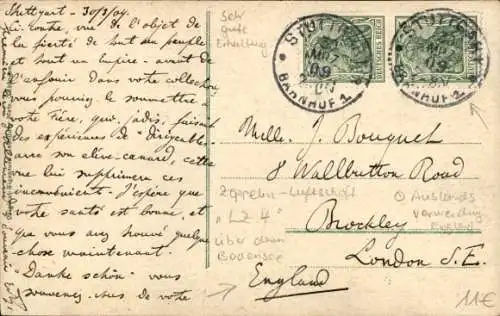 Stuttgart - 30/3/09.
Ci-contre, vue de l'objet de
la fierté de tout un peuple
et tout un empire. avant de
l'enfouir dans votre collection
vous pourriez le soumettre à
votre Père, que, jadis, faisait
des expériences de "dirigeables"
avec son élève-canard, cette
vue lui supprimera ces
inconvénients. J'espère que
votre santé est bonne, et
que vous avez trouvé quelque
chose maintenant.
"Danke schön" vous
souvenez-vous de votre
Sehr
gute
Erhaltung
STUTTGART
MRZ
09
BAHNHOF 1
STUTTGART
09
BAHNHOF 1
Mlle. J. Bouquet
8 Wallbutton Road
Brockley
London S.E.
England
Zeppelin-Luftschiff
"LZ 4"
über dem
Bodensee
Auslands
Verwendung
11€